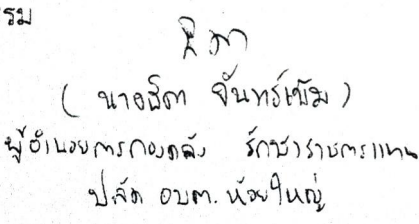 รม
ธิดา
( นางธิดา จันทร์เข้ม )
ผู้อำนวยการกองคลัง รักษาราชการแทน
ปลัด อบต. ห้วยใหญ่